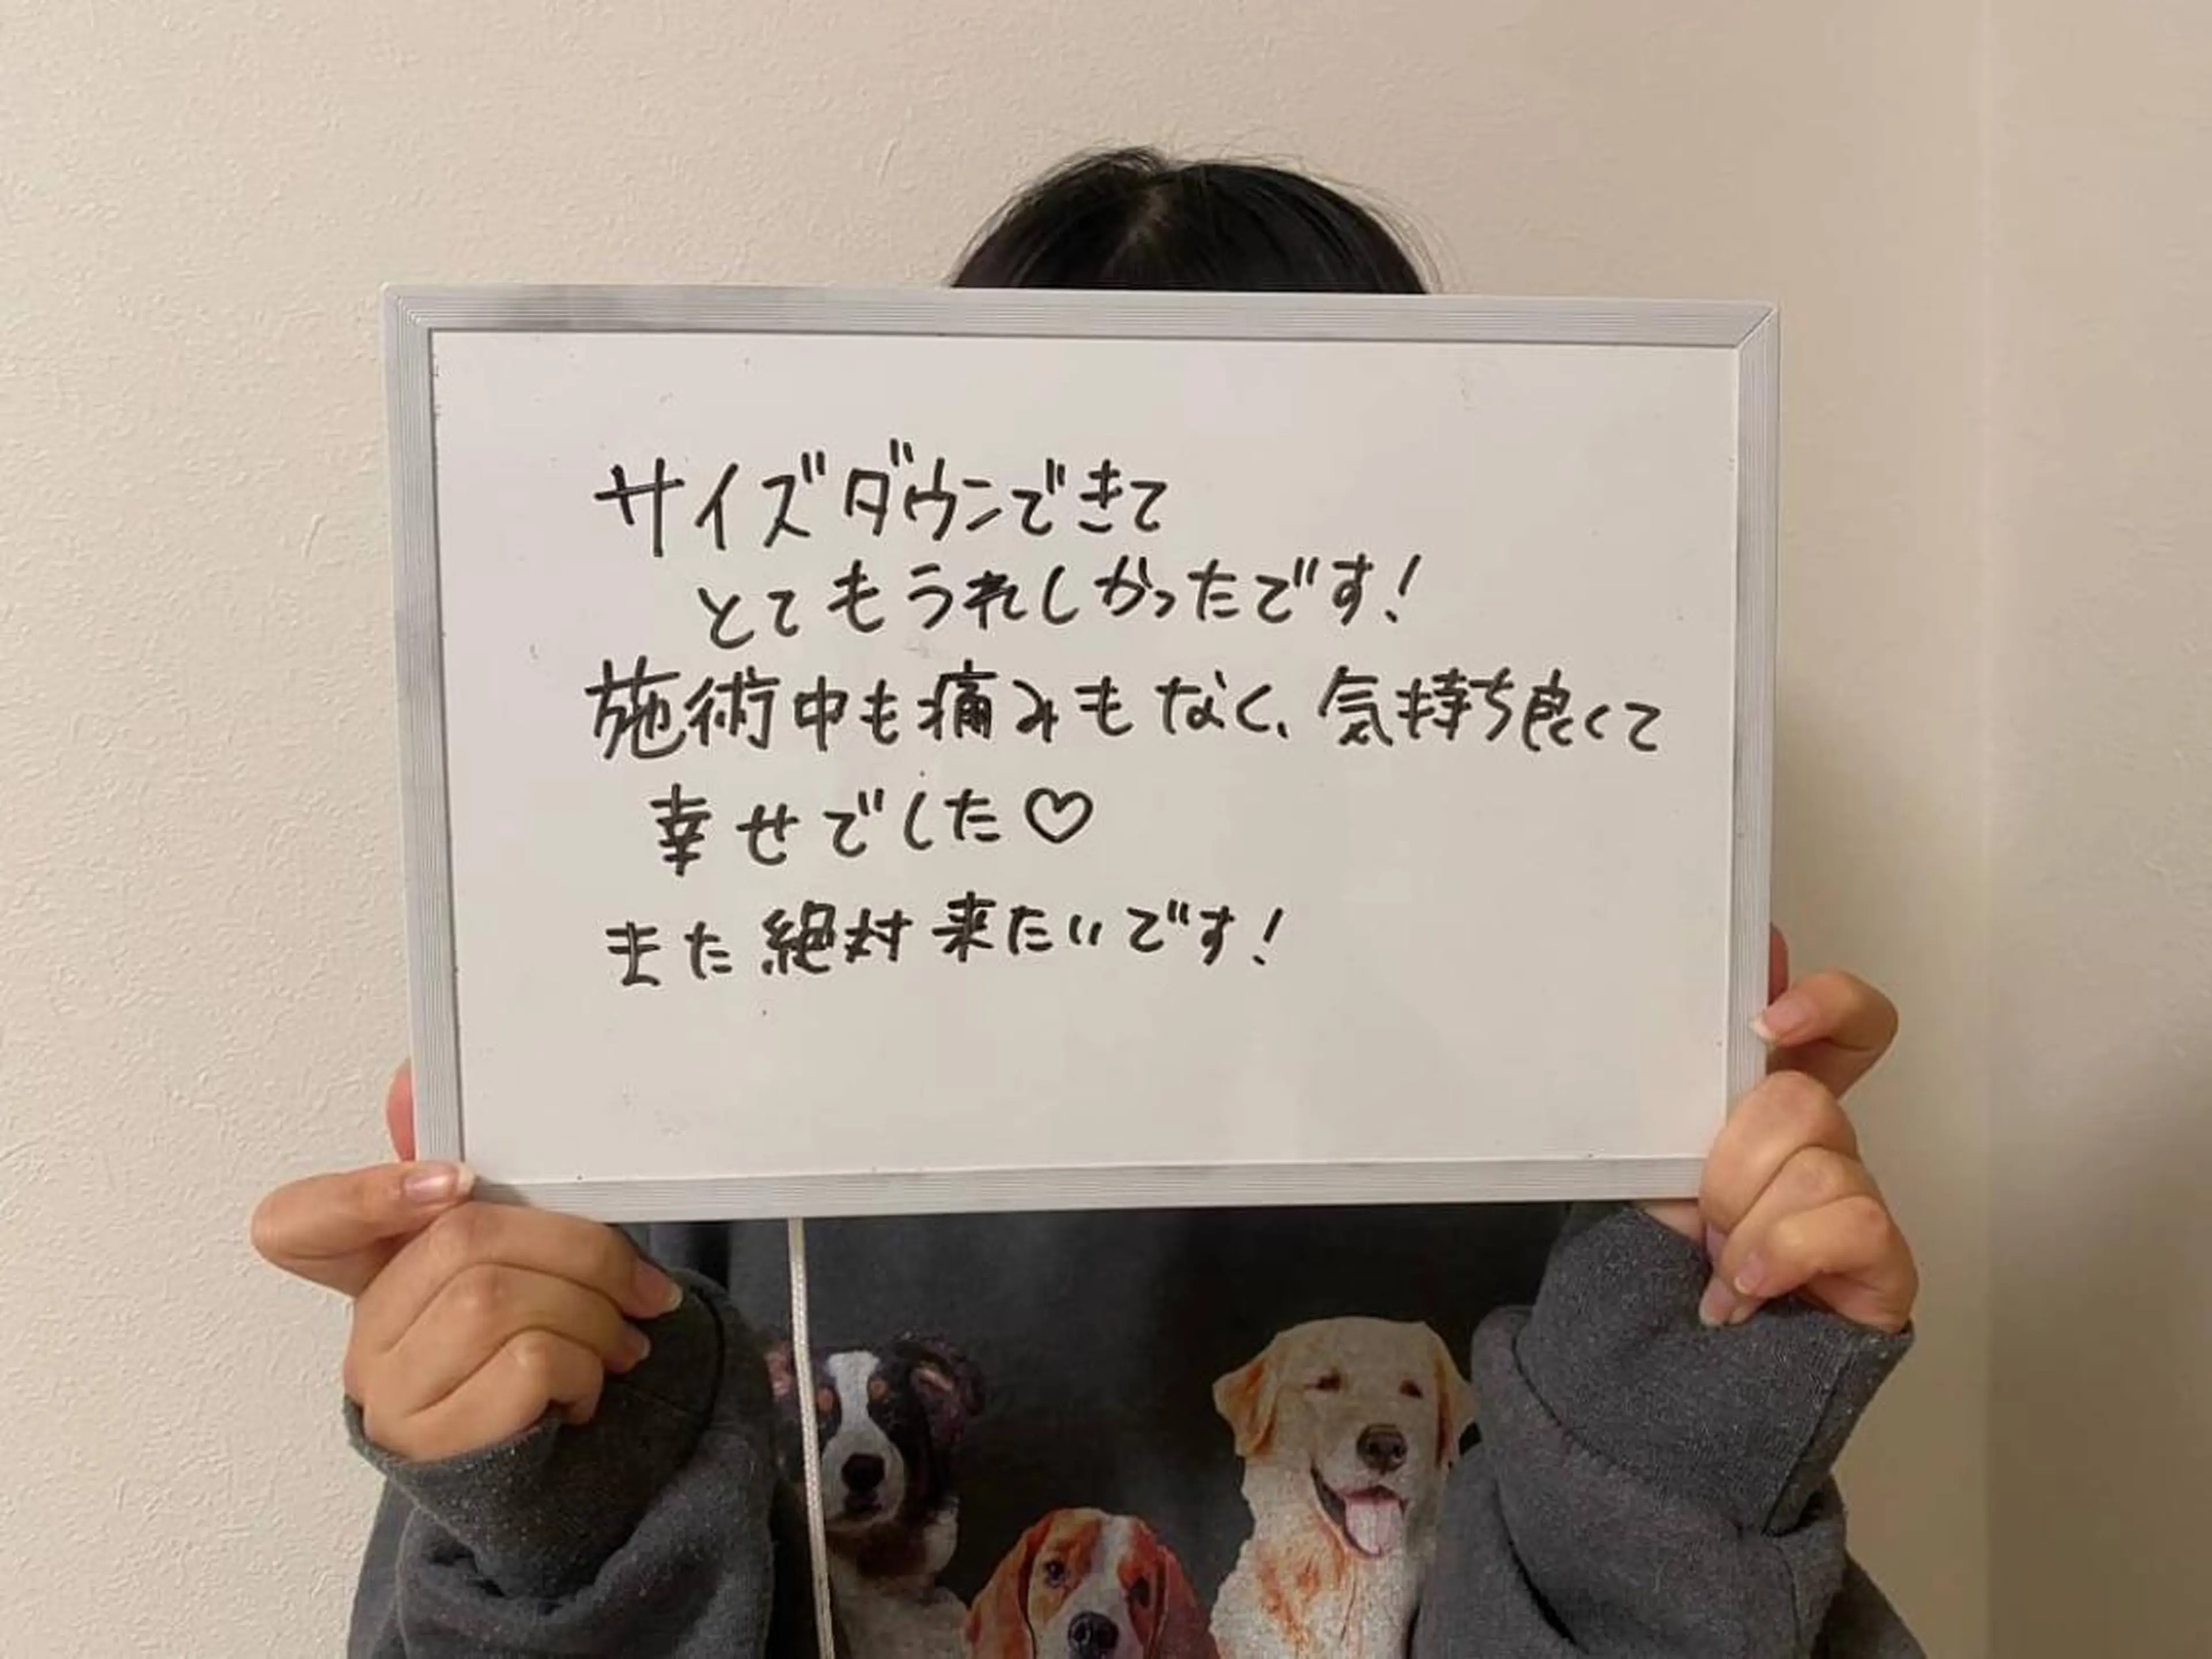 サイズダウンできて
とてもうれしかったです!
施術中も痛みもなく、気持ち良くて
幸せでした♡
また絶対来たいです!